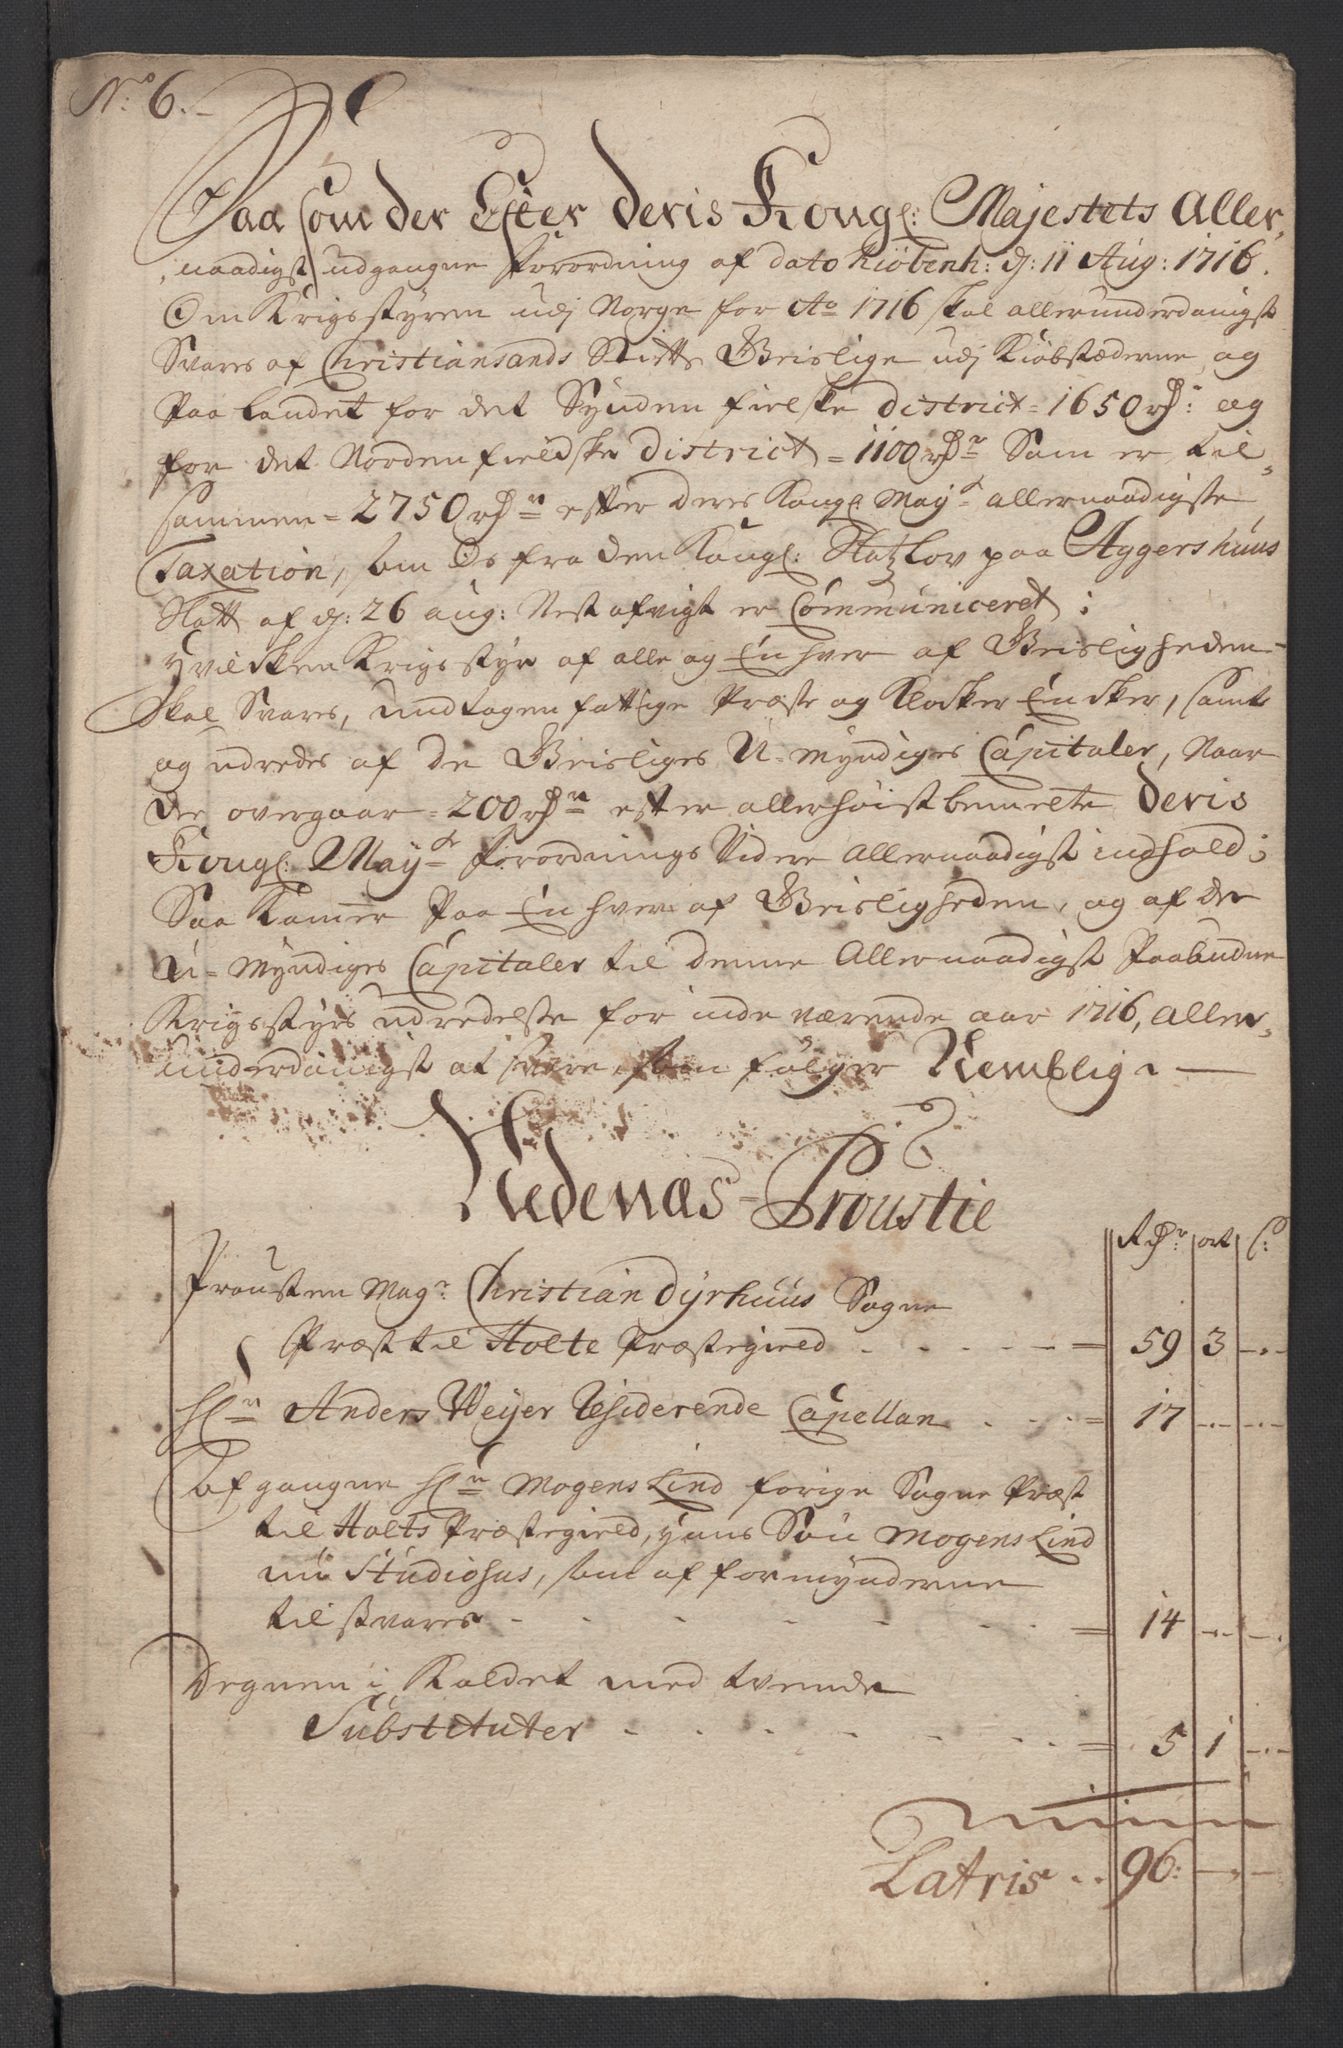 No: 6.
Saasom der Efter Deris Kongl: Majestets Aller-
naadigst udgangne Forordning af dato Kiöbenh: d: 11 Aug: 1716.
Om Krigsstyren udj Norge for Ao 1716 skal allerunderdanigst
Svares af Christiansands Stifts Geislige udj Kiöbstæderne og
Paa Landet for det Synden fielske District = 1650 rd: og
for det Nordenfieldske District = 1100 rdr Som er til-
sammen = 2750 rdr efter deres Kongl Mayts allernaadigste
Taxation, som Os fra den Kongl: Slotzlov paa Aggershuus
Slott af d: 26 aug: Nest afvigt er Communiceret;
hvilcken Krigsstyr af alle og Enhver af Geisligheden
Skal Svares, undtagen fattige Præste og Klocker Encker, samt
og udredes af de Geisliges U-myndiges Capitaler, Naar
de overgaar = 200 rdr efter allerhöistbemelte Deris
Kongl: Mayts Forordnings Videre Allernaadigst indhold;
Saa Kommer Paa Enhver af Geisligheden, og af de
U-Myndiges Capitaler til denne Allernaadigst Paabudne
Krigsstyrs udredelse for inde værende aar 1716, aller-
underdanigst at svare, som fölger Nemblig
Nedenæs-Proustie
Rdr ort s:
Prousten Magr Christian Dyrhuus Sogne
Præst til Holte Præstegield = 59 3 -
Hr Anders Weyer Residerende Capellan = 17 - -
Afgangne Hr Mogens Lind forige Sogne Præst
til Holts Præstegield, hans Sön Mogens Lind
nu Studiosus, som af formynderne
til svares = 14 - -
Degnen i Kaldet med tvende
Substituter = 5 1 -
Latris 96: - -